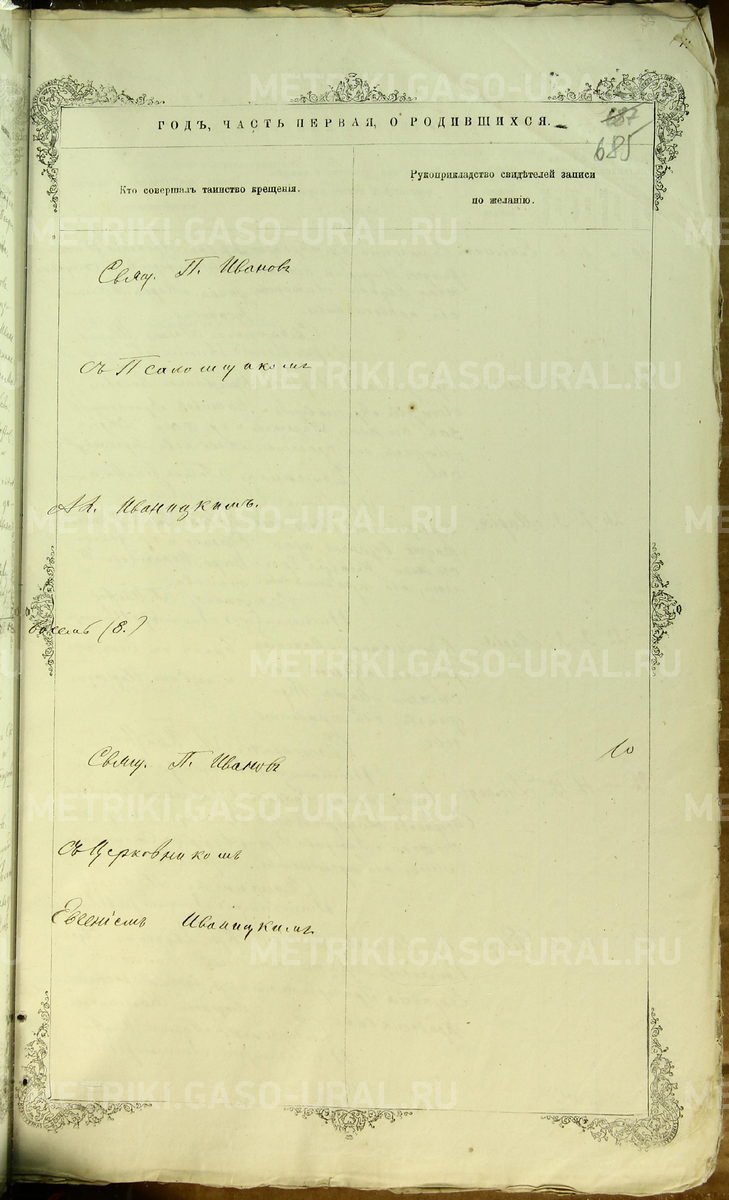 ГОДЪ, ЧАСТЬ ПЕРВАЯ, О РОДИВШИХСЯ.
685
Кто совершалъ таинство крещенія.
Рукоприкладство свидѣтелей записи
по желанію.
Свящ. П. Ивановъ
съ Псаломщикомъ
Ал. Иваницкимъ.
восемь (8.)
Свящ. П. Ивановъ
10
съ Церковникомъ
Евгеніемъ Иваницкимъ
METRIKI.GASO-URAL.RU